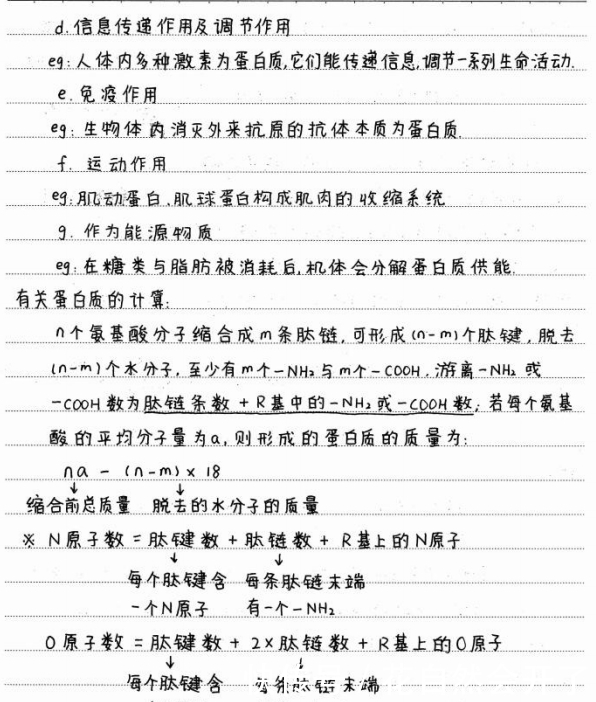 d.信息传递作用及调节作用
eg:人体内多种激素为蛋白质,它们能传递信息,调节一系列生命活动.
e.免疫作用
eg:生物体内消灭外来抗原的抗体本质为蛋白质.
f.运动作用
eg:肌动蛋白.肌球蛋白构成肌肉的收缩系统
g.作为能源物质
eg:在糖类与脂肪被消耗后,机体会分解蛋白质供能.
有关蛋白质的计算:
n个氨基酸分子缩合成m条肽链,可形成(n-m)个肽键,脱去
(n-m)个水分子,至少有m个-NH₂与m个-COOH.游离-NH₂或
-COOH数为肽链条数+R基中的-NH₂或-COOH数;若每个氨基
酸的平均分子量为a,则形成的蛋白质的质量为:
na - (n-m)×18
↓ ↓
缩合前总质量 脱去的水分子的质量
※ N原子数=肽键数+肽链数+R基上的N原子
↓ ↓
每个肽键含 每条肽链末端
一个N原子 有一个-NH₂
O原子数=肽键数+2×肽链数+R基上的O原子
↓ ↓
每个肽键含 末端